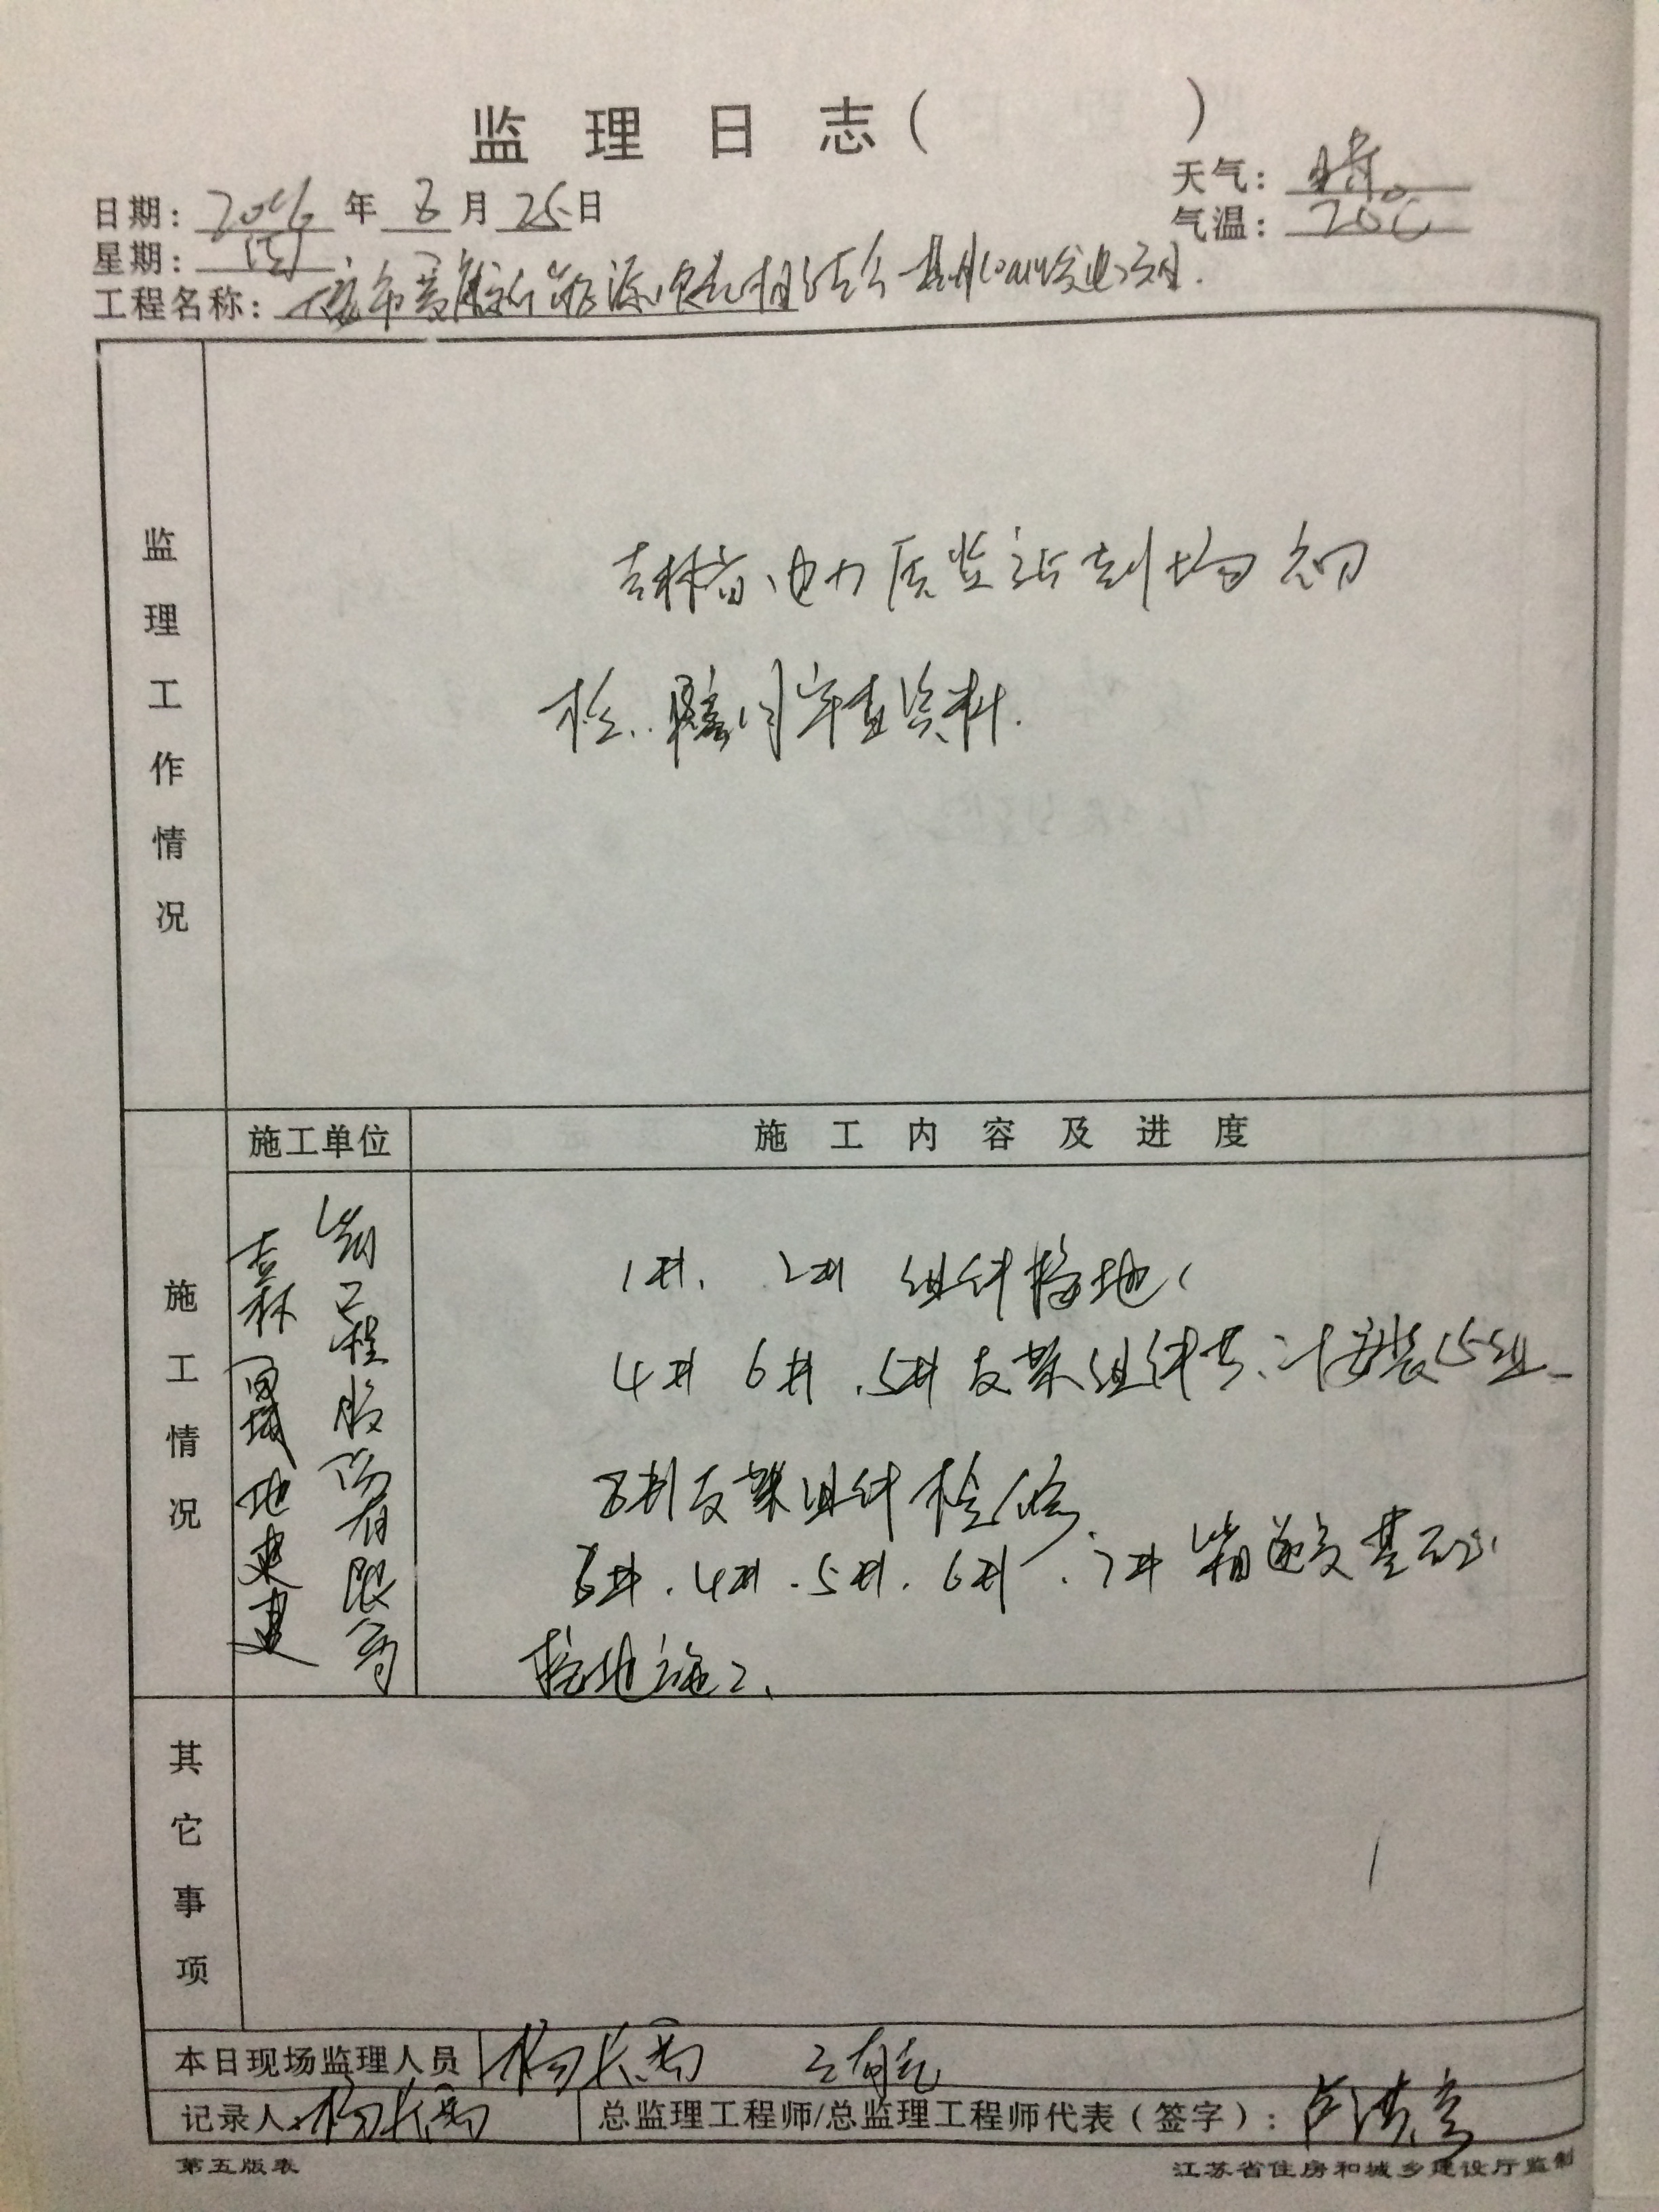 监理日志( )
日期: 2016 年 8 月 25 日
天气: 晴
星期: 四
气温: 20℃
工程名称: 市 新能源 相结合一期10MW发电项目.
监理工作情况
吉林省电力质监站到场初
检. 审查资料.
施工单位
施工内容及进度
施工情况
吉林 地建
工程股份有限公司
1#. 2# 组件接地、
4# 6# .5# 支架组件共计安装15组
8#支架组件检修
3#.4#.5#.6#.7# 箱变基础
接地施工、
其它事项
本日现场监理人员
记录人:
总监理工程师/总监理工程师代表(签字):
第五版表
江苏省住房和城乡建设厅监制